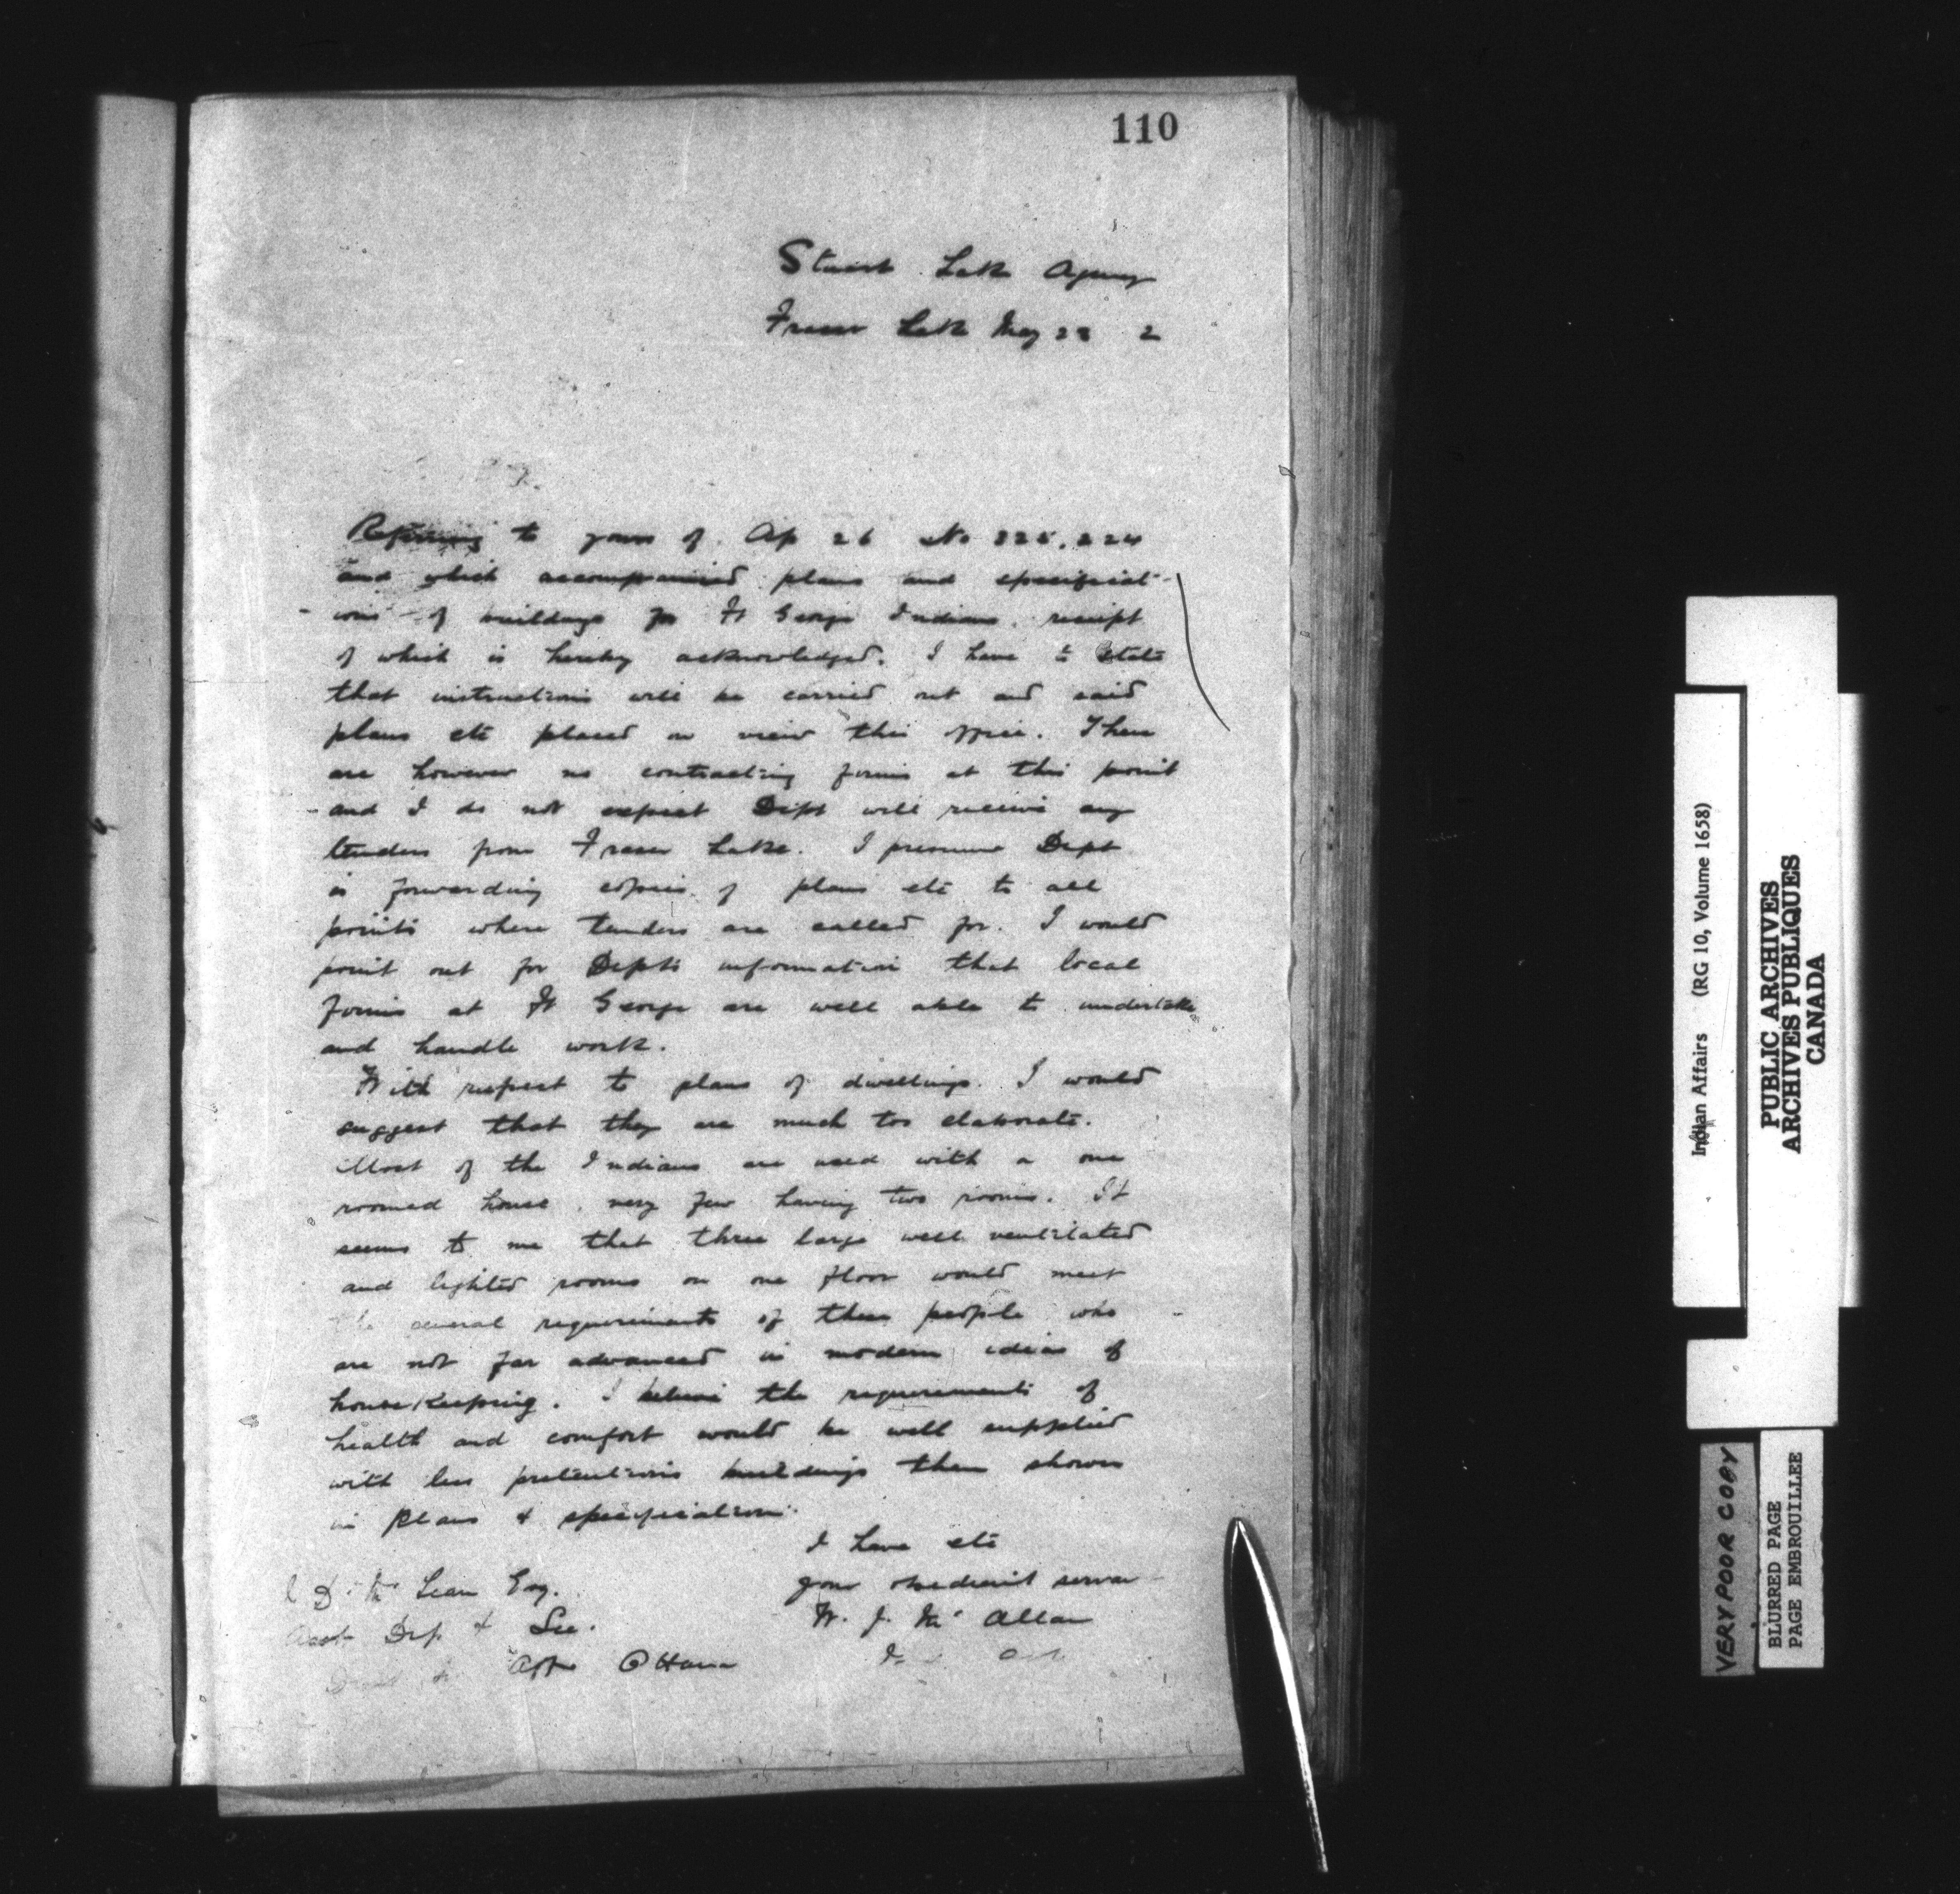 110
Stuart Lake Agency
Fraser Lake May 23 2
Referring to yours of Ap 26 No 325,224
and which accompanied plans and specificat-
ions of buildings for Ft George Indians. receipt
of which is hereby acknowledged. I have to state
that instructions will be carried out and said
plans etc placed on view this office. There
are however no contracting firms at this point
and I do not expect Dept will receive any
tenders from Fraser Lake. I presume Dept
is forwarding copies of plans etc to all
points where tenders are called for. I would
point out for Depts information that local
firms at Ft George are well able to undertake
and handle work.
With respect to plans of dwellings. I would
suggest that they are much too elaborate.
Most of the Indians are used with a one
roomed house, very few having two rooms. It
seems to me that three large well ventilated
and lighted rooms on one floor would meet
the general requirements of these people who
are not far advanced in modern ideas of
housekeeping. I believe the requirements of
health and comfort would be well supplied
with less pretentious buildings then shown
in Plans & specification.
I have etc
your obedient servan
W. J. Mc Allan
J D. Mc Lean Esq.
Asst Dep & Sec.
Affrs Ottawa
Indian Affairs (RG 10, Volume 1658)
PUBLIC ARCHIVES
ARCHIVES PUBLIQUES
CANADA
VERY POOR COPY
BLURRED PAGE
PAGE EMBROUILLEE